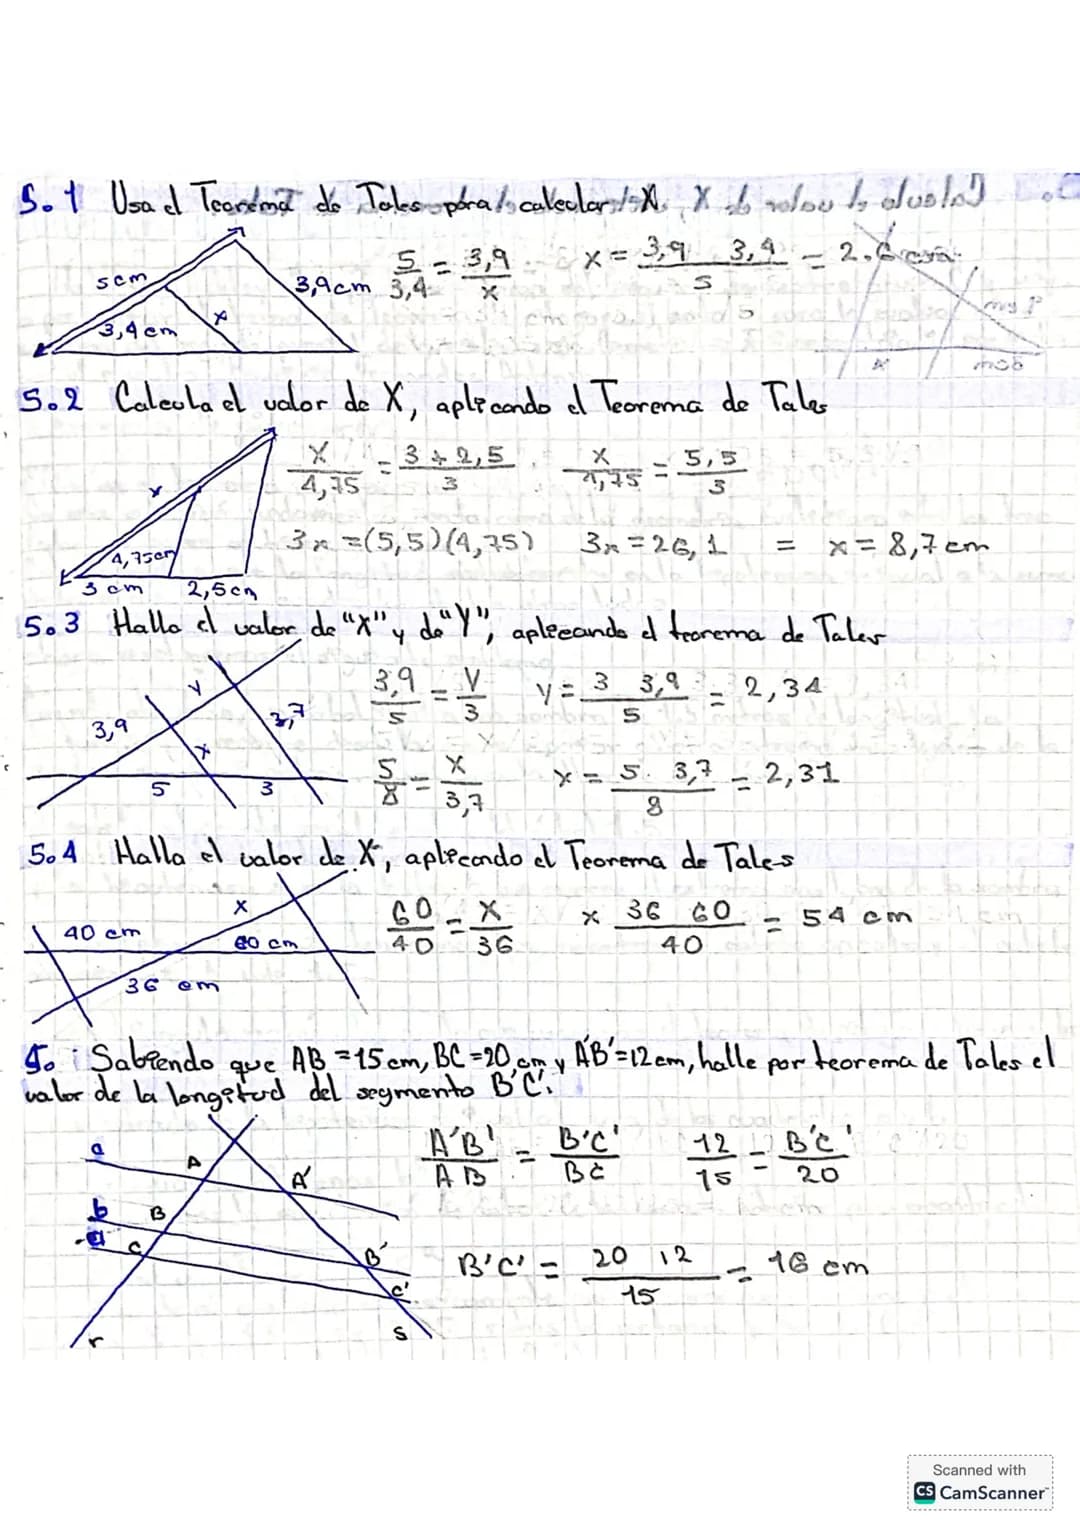 5.1 Usa el Teorema de Tales para calcular X
5cm
3,9cm
3,4cm
x
5/3,4 = 3,9/x
x = 3,9 3,4/5 = 2.6
5.2 Calcula el valor de X, aplicando el Teorema de Tales
x
4,75cm
3 cm 2,5cm
x/4,75 = 3+2,5/3 x/4,75 = 5,5/3
3x=(5,5)(4,75) 3x=26,1 = x=8,7cm
5.3 Halla el valor de "X" y de "Y", aplicando el teorema de Tales
y
3,9
3,7
x
5 3
3,9/5 = y/3 y = 3 3,9/5 = 2,34
5/8 = x/3,7 x = 5. 3,7/8 = 2,31
5.4 Halla el valor de X, aplicando el Teorema de Tales
x
40 cm
60 cm
36 cm
60/40 = x/36 x 36 60/40 = 54 cm
5. Sabiendo que AB=15cm, BC=20cm y A'B'=12cm, halle por teorema de Tales el
valor de la longitud del segmento B'C'.
a A A'
b B B'
C C'
r s
A'B'/AB = B'C'/BC 12/15 = B'C'/20
B'C' = 20 12/15 = 16 cm
Scanned with
CS CamScanner